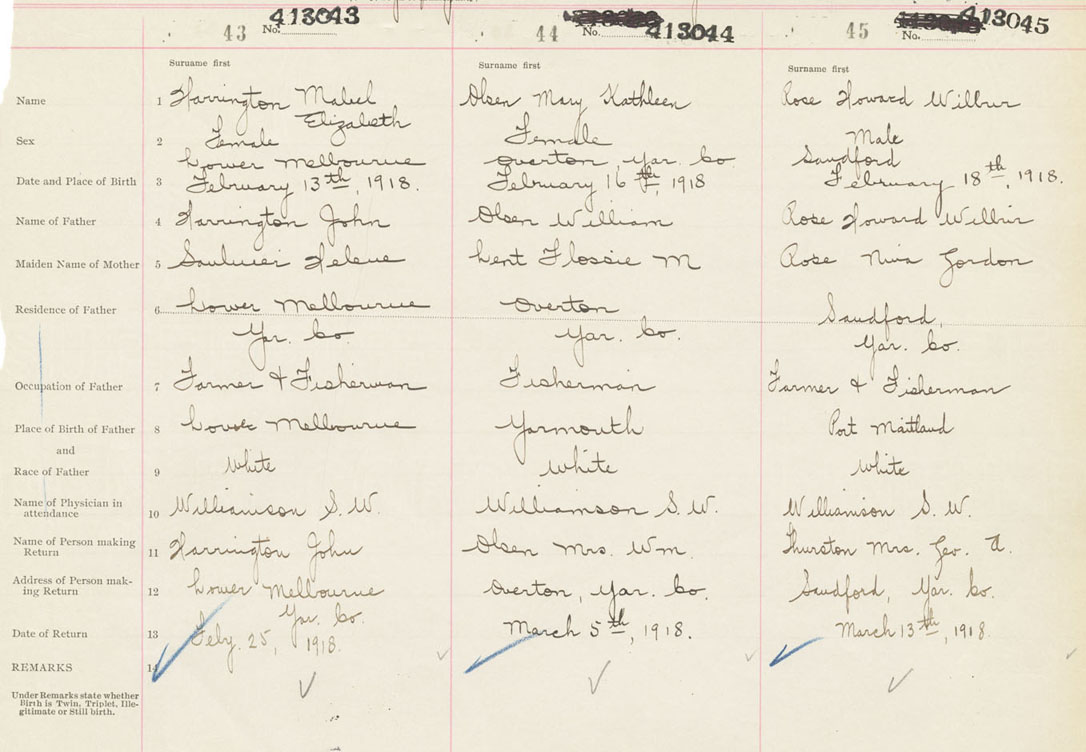 413043
43 No.
44 No. 413044
45 No. 413045
Surname first Surname first Surname first
Name 1 Harrington Mabel Elizabeth Olsen Mary Kathleen Rose Howard Wilbur
Sex 2 Female Female Male
Lower Melbourne Overton, Yar. Co Sandford
Date and Place of Birth 3 February 13th, 1918. February 16th, 1918 February 18th, 1918.
Name of Father 4 Harrington John Olsen William Rose Howard Wilbur
Maiden Name of Mother 5 Saulnier Helene Lent Flossie M Rose Niva Gordon
Residence of Father 6 Lower Melbourne Overton Sandford,
Yar. Co. Yar. Co. Yar. Co.
Occupation of Father 7 Farmer & Fisherman Fisherman Farmer & Fisherman
Place of Birth of Father 8 Lower Melbourne Yarmouth Port Maitland
and
Race of Father 9 White White White
Name of Physician in
attendance 10 Williamson S. W. Williamson S. W. Williamson S. W.
Name of Person making
Return 11 Harrington John Olsen Mrs. Wm. Thurston Mrs. Geo. A.
Address of Person mak-
ing Return 12 Lower Melbourne Overton, Yar. Co. Sandford, Yar. Co.
Yar. Co.
Date of Return 13 Feby. 25, 1918. March 5th, 1918. March 13th, 1918.
REMARKS 14
Under Remarks state whether
Birth is Twin, Triplet, Ille-
gitimate or Still birth.